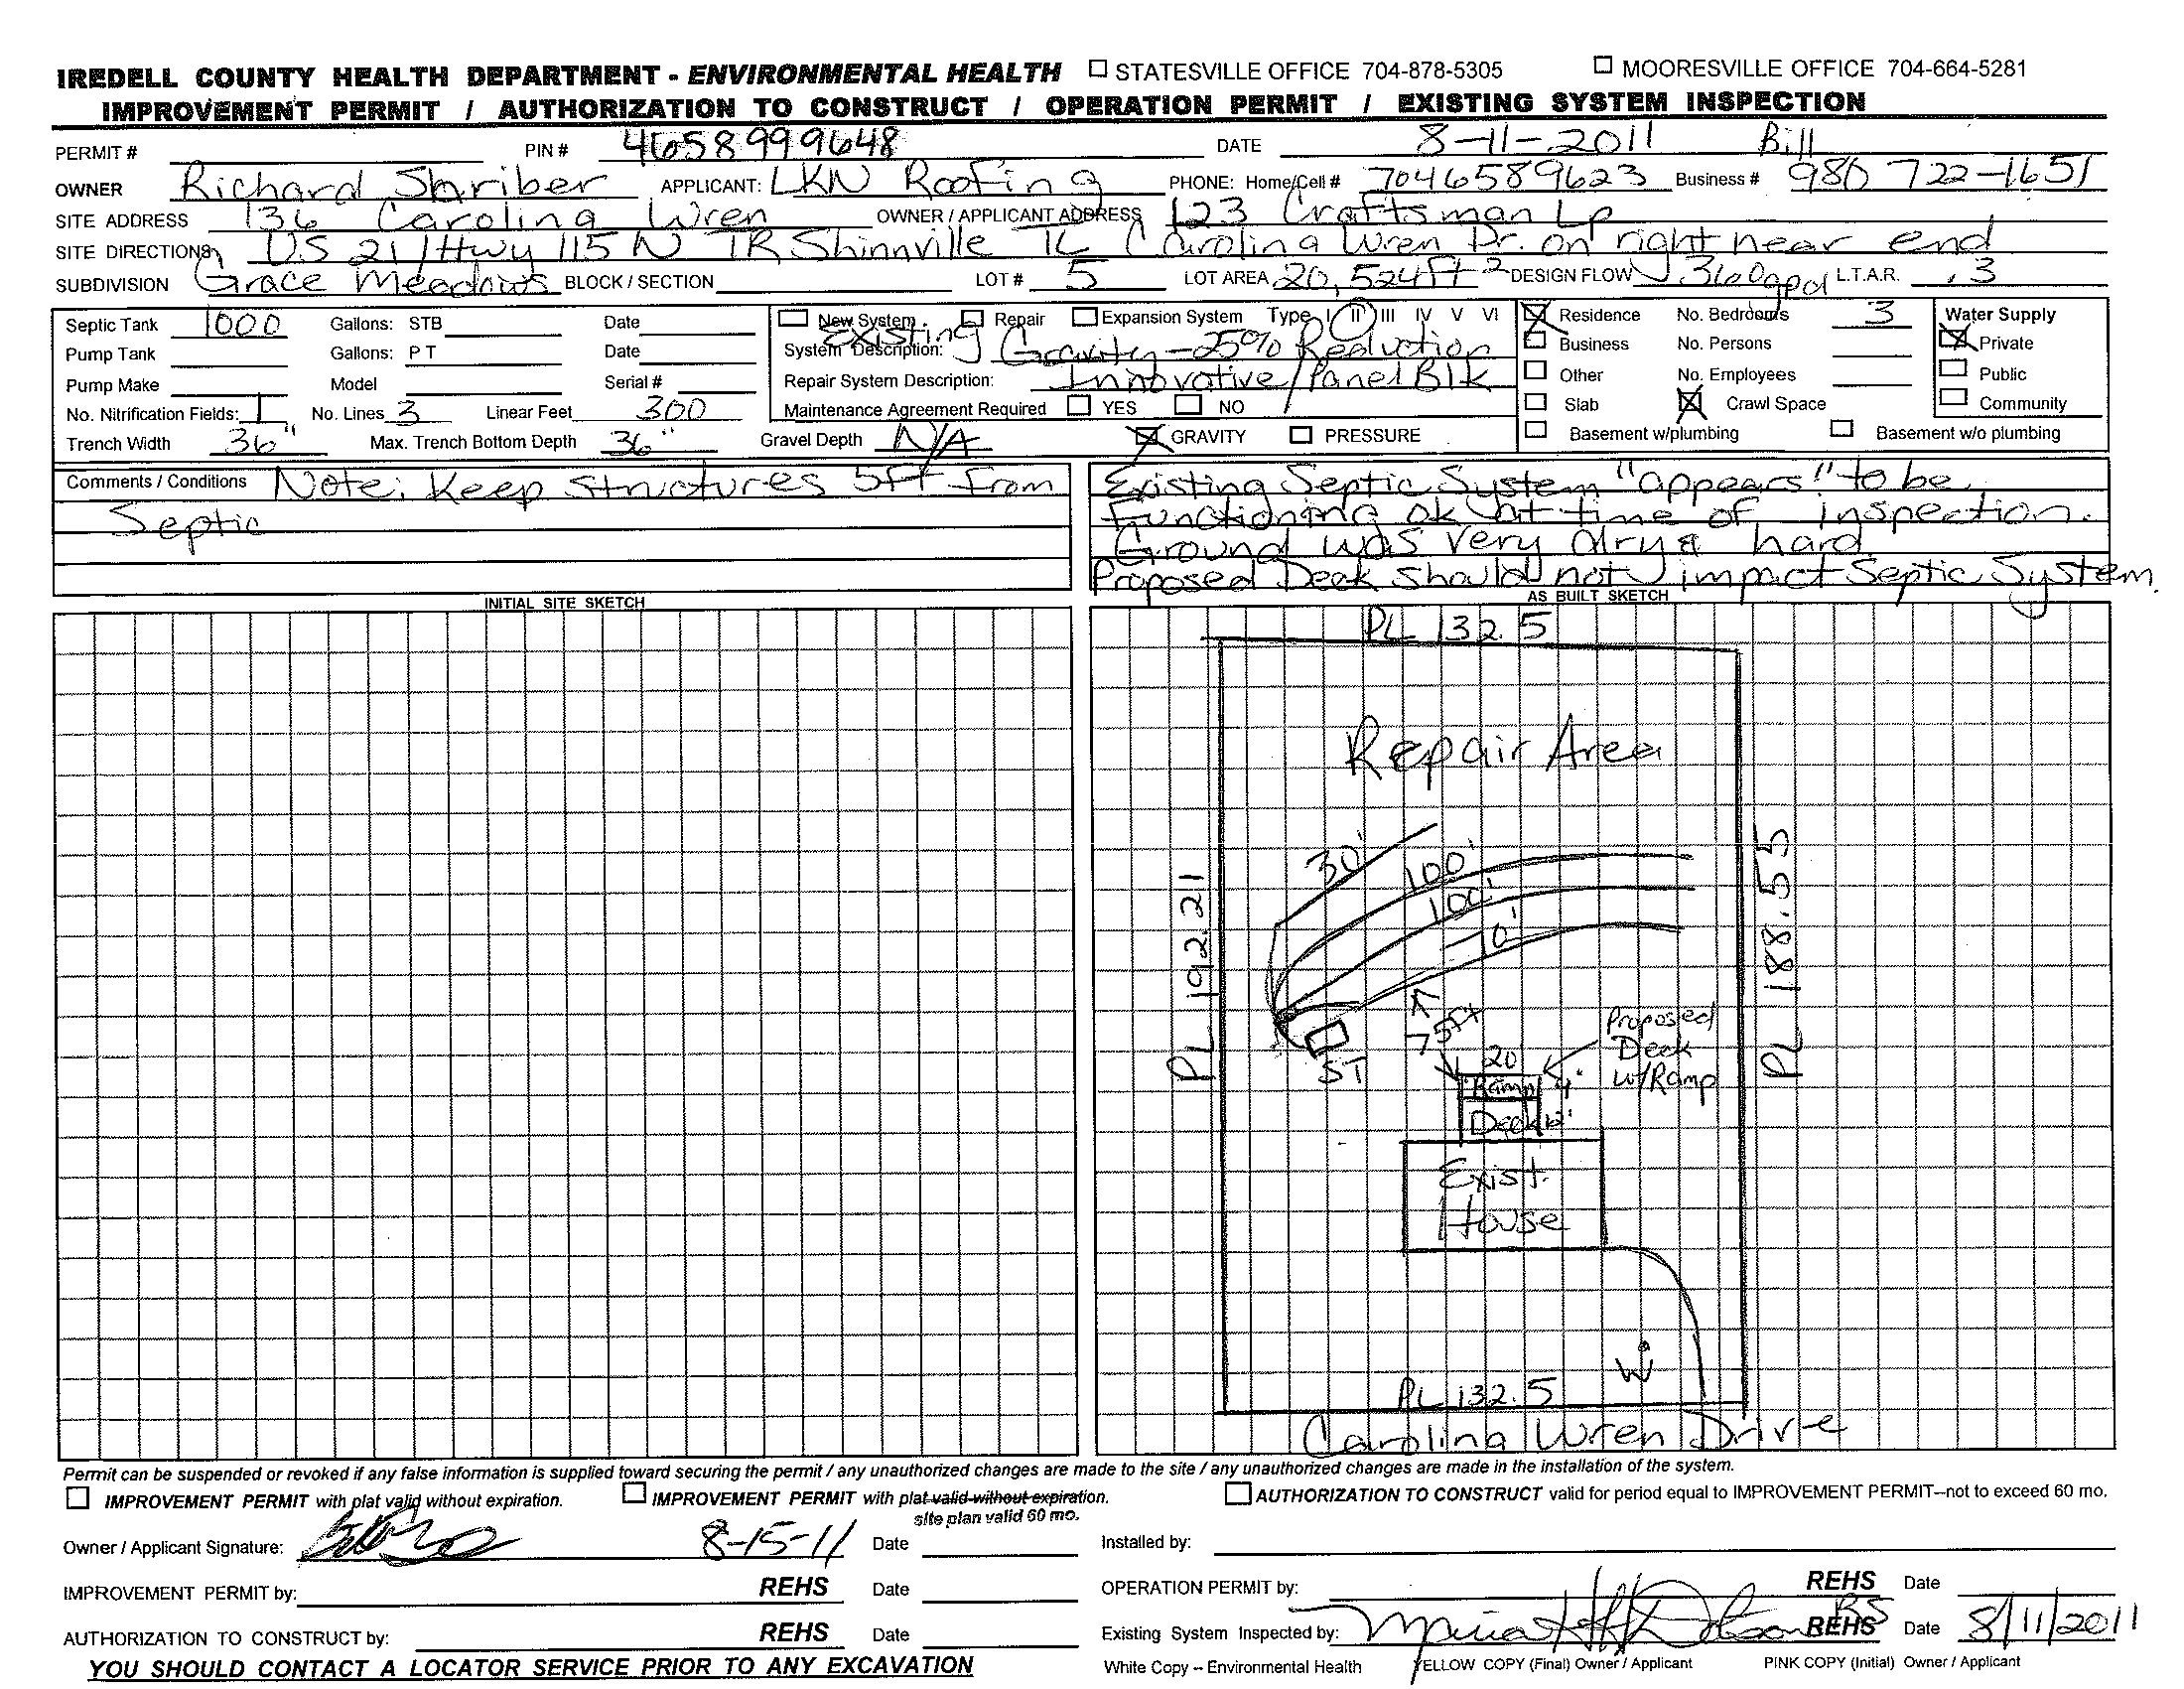 IREDELL COUNTY HEALTH DEPARTMENT - ENVIRONMENTAL HEALTH ☐ STATESVILLE OFFICE 704-878-5305 ☐ MOORESVILLE OFFICE 704-664-5281
IMPROVEMENT PERMIT / AUTHORIZATION TO CONSTRUCT / OPERATION PERMIT / EXISTING SYSTEM INSPECTION
PERMIT # PIN # 4658999648 DATE 8-11-2011 Bill
OWNER Richard Shriber APPLICANT: LKN Roofing PHONE: Home/Cell # 7046589623 Business # 980 722-1651
SITE ADDRESS 136 Carolina Wren OWNER / APPLICANT ADDRESS 123 Craftsman Lp
SITE DIRECTIONS US 21/Hwy 115 N TR Shinnville TL Carolina Wren Dr. on right near end
SUBDIVISION Grace Meadows BLOCK / SECTION LOT # 5 LOT AREA 20,524ft² DESIGN FLOW 360gpd L.T.A.R. .3
Septic Tank 1000 Gallons: STB Date
Pump Tank Gallons: P T Date
Pump Make Model Serial #
No. Nitrification Fields: 1 No. Lines 3 Linear Feet 300
Trench Width 36" Max. Trench Bottom Depth 36" Gravel Depth N/A ☒ GRAVITY ☐ PRESSURE
☐ New System ☐ Repair ☐ Expansion System Type I II III IV V VI
Existing
System Description: Gravity-25% Reduction
Repair System Description: Innovative/Panel Blk
Maintenance Agreement Required ☐ YES ☐ NO
☒ Residence No. Bedrooms 3
☐ Business No. Persons
☐ Other No. Employees
☐ Slab ☒ Crawl Space
☐ Basement w/plumbing ☐ Basement w/o plumbing
Water Supply
☒ Private
☐ Public
☐ Community
Comments / Conditions Note: Keep structures 5ft from
Septic
Existing Septic System "appears" to be
Functioning ok at time of inspection.
Ground was very dry & hard
Proposed Deck should not impact Septic System.
INITIAL SITE SKETCH
AS BUILT SKETCH
PL 132.5
Repair Area
30'
100'
100'
70'
PL 192.21
PL 188.55
75ft
ST
20
Ramp 4'
Deck
Proposed
Deck
w/Ramp
Exist.
House
W
PL 132.5
Carolina Wren Drive
Permit can be suspended or revoked if any false information is supplied toward securing the permit / any unauthorized changes are made to the site / any unauthorized changes are made in the installation of the system.
☐ IMPROVEMENT PERMIT with plat valid without expiration. ☐ IMPROVEMENT PERMIT with plat valid without expiration. ☐ AUTHORIZATION TO CONSTRUCT valid for period equal to IMPROVEMENT PERMIT--not to exceed 60 mo.
site plan valid 60 mo.
Owner / Applicant Signature: 8-15-11 Date Installed by:
IMPROVEMENT PERMIT by: REHS Date OPERATION PERMIT by: REHS Date
AUTHORIZATION TO CONSTRUCT by: REHS Date Existing System Inspected by: RS REHS Date 8/11/2011
YOU SHOULD CONTACT A LOCATOR SERVICE PRIOR TO ANY EXCAVATION White Copy -- Environmental Health YELLOW COPY (Final) Owner / Applicant PINK COPY (Initial) Owner / Applicant